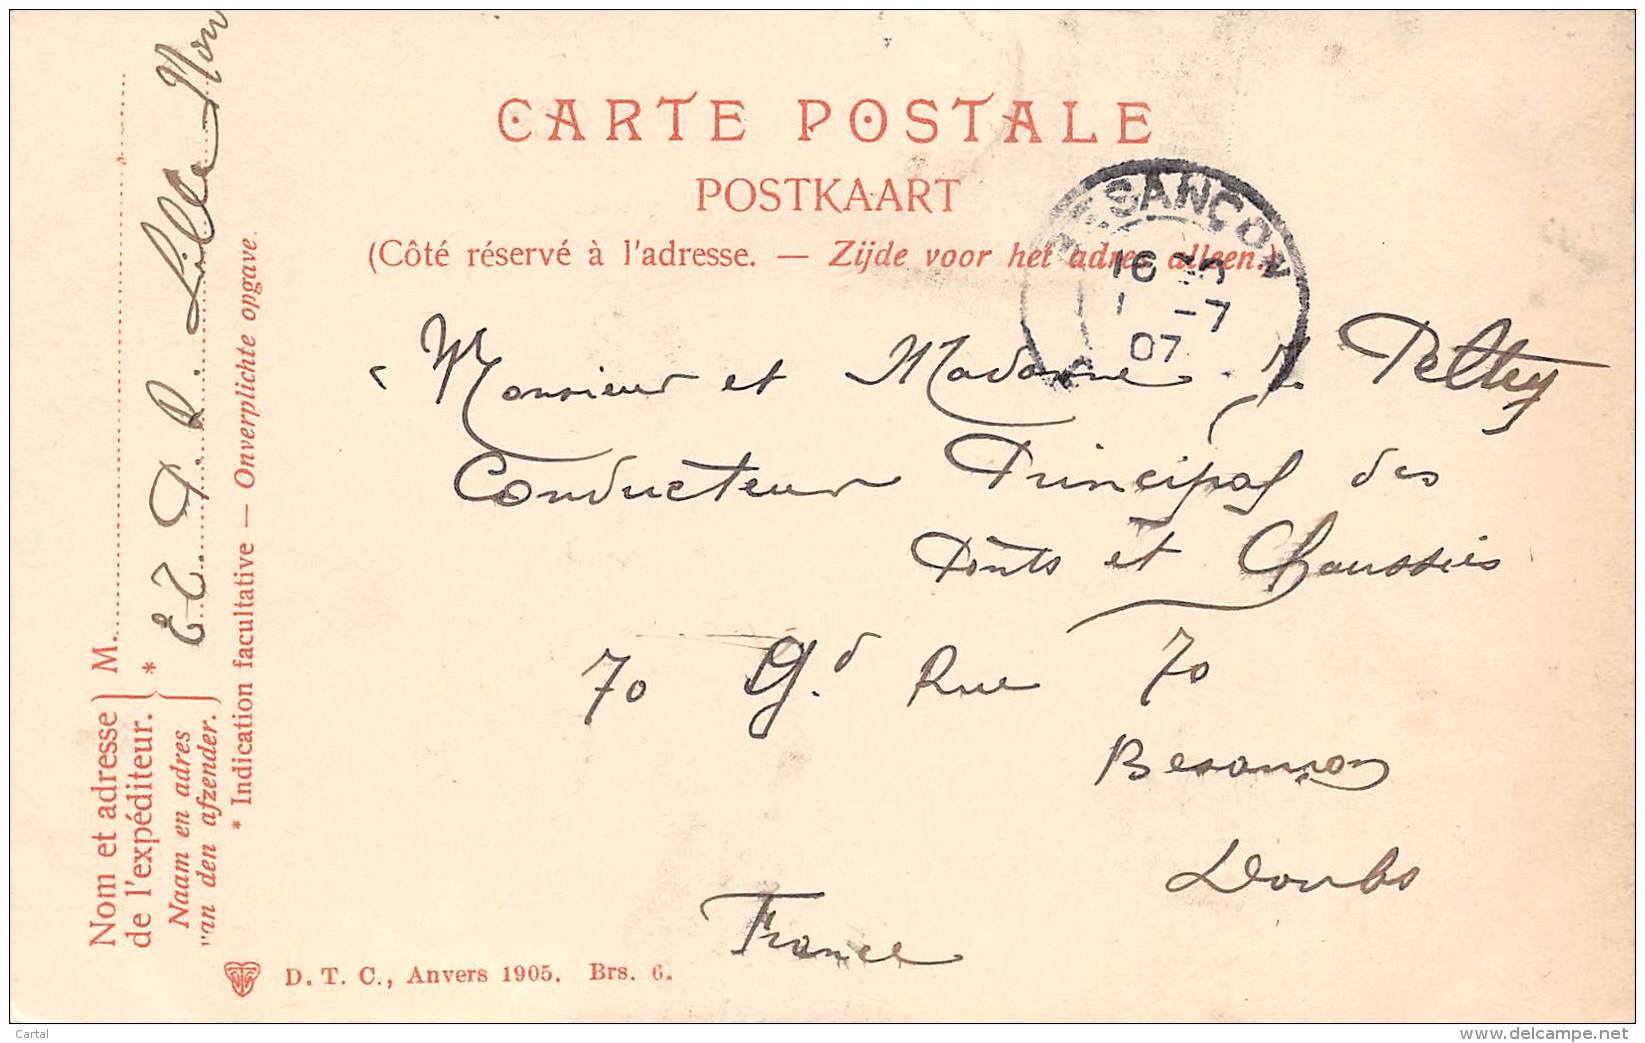 CARTE POSTALE
POSTKAART
(Côté réservé à l'adresse. — Zijde voor het adres alleen.)
BESANÇON
16
1 -7
07
Monsieur et Madame J. Pelhey
Conducteur Principal des
Ponts et Chaussées
70 Gd Rue 70
Besançon
Doubs
France
Nom et adresse
de l'expéditeur.
M.
Naam en adres
van den afzender.
*
Lille Nor
* Indication facultative — Onverplichte opgave.
D. T. C., Anvers 1905. Brs. 6.
Cartal
delcampe.net